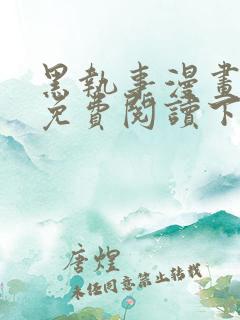 黑執事漫畫
免費閱讀下
唐煌
未經同意禁止轉載